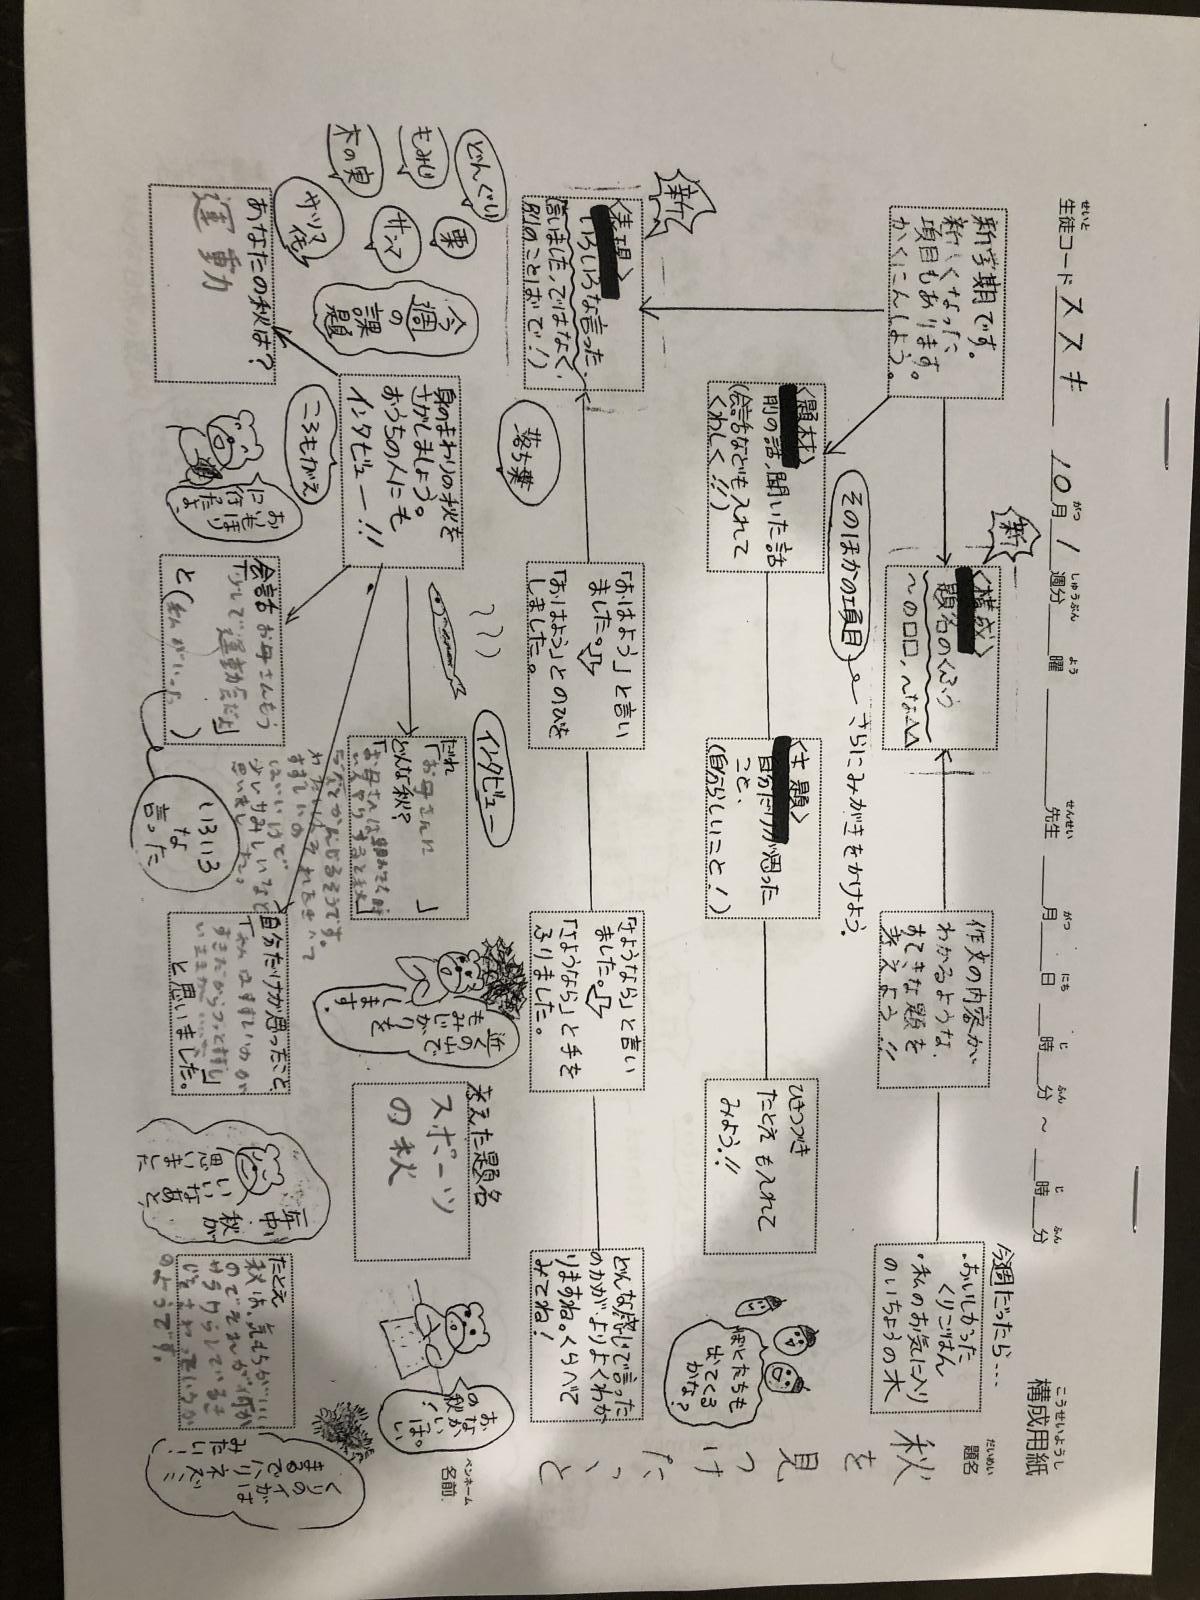 構成用紙
こうせいようし
生徒コード ススキ
せいと
10月1週分 曜 先生 月 日 時 分 ～ 時 分
がつ しゅうぶん よう せんせい がつ にち じ ふん じ ふん
題名
だいめい
秋を見つけたっと
ペンネーム
名前
新学期です。
新しくなった
項目もあります。
かくにんしよう。
新
〈構成〉
題名のくふう
～の口口、～な△△
作文の内容が
わかるような、
すてきな題を
考えよう!!
今週だったら…
・おいしかった
くりごはん
・私のお気に入り
のいちょうの木
そのほかの項目
さらにみがきをかけよう。
〈題材〉
前の話、聞いた話
(会話なども入れて
くわしく!!)
〈主題〉
自分だけが思った
こと、
(自分らしいこと!)
ひきつづき
たとえも入れて
みよう!!
ぼくたちも
出てくる
かな?
新
〈表現〉
いろいろな言った
(言いました、ではなく、
別のことばで!)
「おはよう」と言い
ました。
「おはよう」とのびを
しました。
「さようなら」と言い
ました。
「さようなら」と手を
ふりました。
どんな感じで言った
のかが、よりよくわか
りますね。くらべて
みてね!
落ち葉
どんぐり
もみじ
木の実
栗
サンマ
今週の課題
ころもがえ
インタビュー
身のまわりの秋を
さがしましょう。
おうちの人にも
インタビュー!!
あなたの秋は?
運動
おいもほり
に行ったよ
会話 お母さんもう
少しで運動会だよ」
と(私がいった)
いろいろ
な
言った
だれ
「お母さんに
どんな秋?
」
思いました。
自分だけが思ったこと
「私はすずしいのが
」
と思いました。
近くの山で
もみじがりを
します。
考えた題名
スポーツ
の秋
秋が
いいなあと
思いました
おなか
いっぱい。
の秋!
たとえ
秋は、気もちがいい
のでそれが何か
サラサラしている
のようです。
くりのイガは
まるでハリネズミ
みたい!